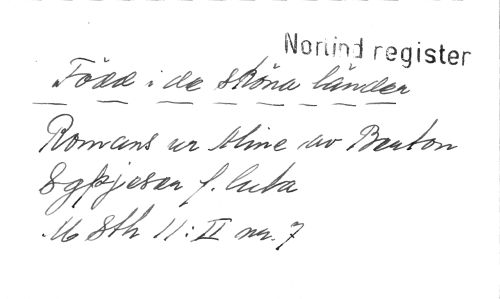 Norlind register
Född i de sköna länder
Romans ur Aline av Berton
f. luta
Sth 11: II nr. 7